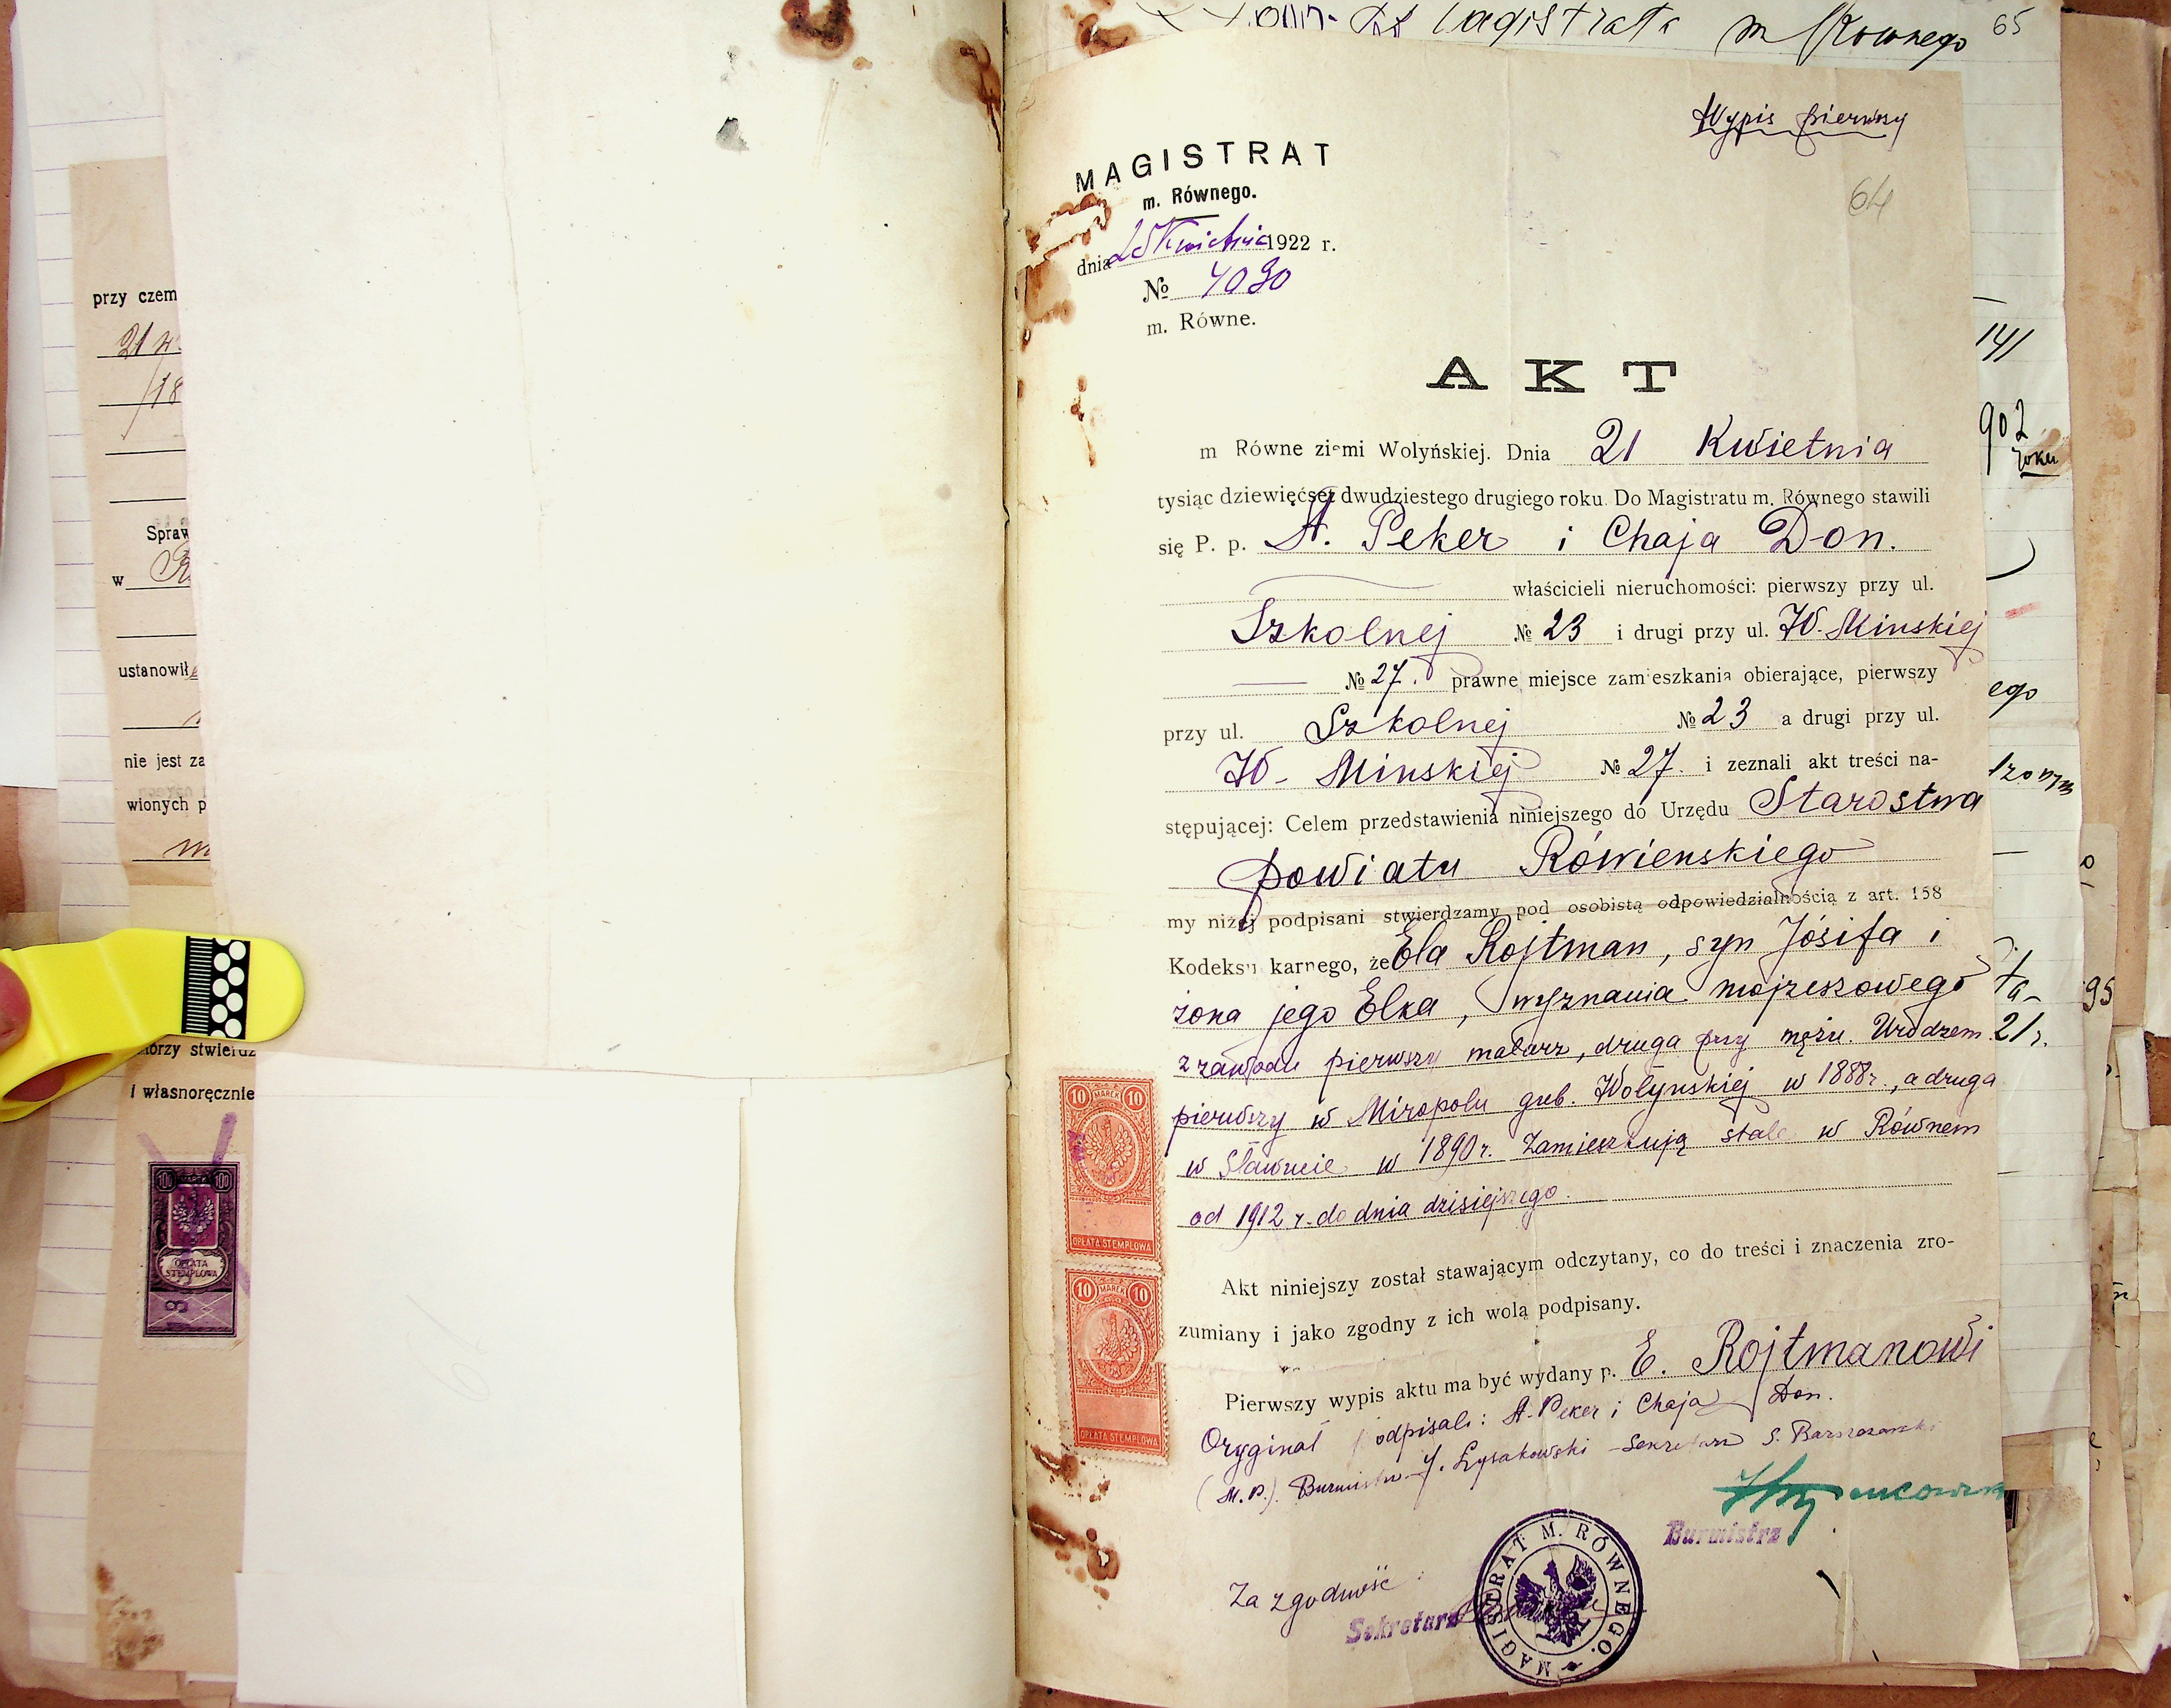 przy czem
21 k
18
Spraw
w R
ustanowił
nie jest za
wionych p
m
tórzy stwierdz
i własnoręcznie
100 100
OPŁATA
STEMPLOWA
Magistrata m Rownego 65
Wypis pierwszy
64
MAGISTRAT
m. Równego.
dnia 25 Kwietnia 1922 r.
№ 4090
m. Równe.
AKT
m Równe ziemi Wolyńskiej. Dnia 21 Kwietnia
tysiąc dziewięćset dwudziestego drugiego roku. Do Magistratu m. Równego stawili
się P. p. A. Peker i Chaja Don.
właścicieli nieruchomości: pierwszy przy ul.
Szkolnej № 23 i drugi przy ul. W. Minskiej
№ 27. prawne miejsce zamieszkania obierające, pierwszy
przy ul. Szkolnej № 23 a drugi przy ul.
W- Minskiej № 27. i zeznali akt treści na-
stępującej: Celem przedstawienia niniejszego do Urzędu Starostwa
powiatu Rówienskiego
my niżej podpisani stwierdzamy pod osobistą odpowiedzialnością z art. 158
Kodeksu karnego, że Ela Rojtman, syn Jósifa i
żona jego Elka, wyznania mojżeszowego
z zawodu pierwszy malarz, druga przy mężu. Urodzeni
pierwszy w Miropolu gub. Wołynskiej w 1888 r., a druga
w Sławucie w 1890 r. Zamieszkują stale w Równem
od 1912 r. do dnia dzisiejszego.
Akt niniejszy został stawającym odczytany, co do treści i znaczenia zro-
zumiany i jako zgodny z ich wolą podpisany.
Pierwszy wypis aktu ma być wydany p. E. Rojtmanowi
Oryginał podpisali: A. Peker i Chaja Don.
(M.P.) Burmistrz - J. Łysakowski - Sekretarz S.
Burmistrz
Za zgodność:
Sekretarz
MAGISTRAT M. RÓWNEGO.
10 MAREK 10
OPŁATA STEMPLOWA
10 MAREK 10
OPŁATA STEMPLOWA
141
902
roku
ego
ta-
21 r.
95